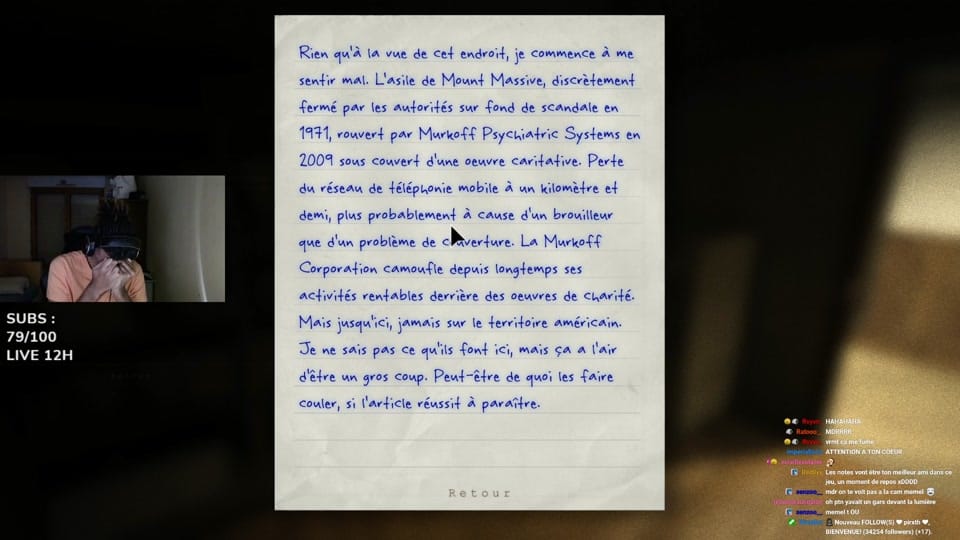 Rien qu'à la vue de cet endroit, je commence à me
sentir mal. L'asile de Mount Massive, discrètement
fermé par les autorités sur fond de scandale en
1971, rouvert par Murkoff Psychiatric Systems en
2009 sous couvert d'une oeuvre caritative. Perte
du réseau de téléphonie mobile à un kilomètre et
demi, plus probablement à cause d'un brouilleur
que d'un problème de couverture. La Murkoff
Corporation camoufle depuis longtemps ses
activités rentables derrière des oeuvres de charité.
Mais jusqu'ici, jamais sur le territoire américain.
Je ne sais pas ce qu'ils font ici, mais ça a l'air
d'être un gros coup. Peut-être de quoi les faire
couler, si l'article réussit à paraître.
Retour
SUBS :
79/100
LIVE 12H
HAHAHAHA
MDRRRR
vrmt ca me fume
ATTENTION A TON COEUR
Les notes vont être ton meilleur ami dans ce
jeu, un moment de repos xDDDD
mdr on te voit pas a la cam memel
oh ptn yavait un gars devant la lumière
memel t OU
Nouveau FOLLOW(S) ♥ pirxth ♥,
BIENVENUE! (34254 followers) (+17).